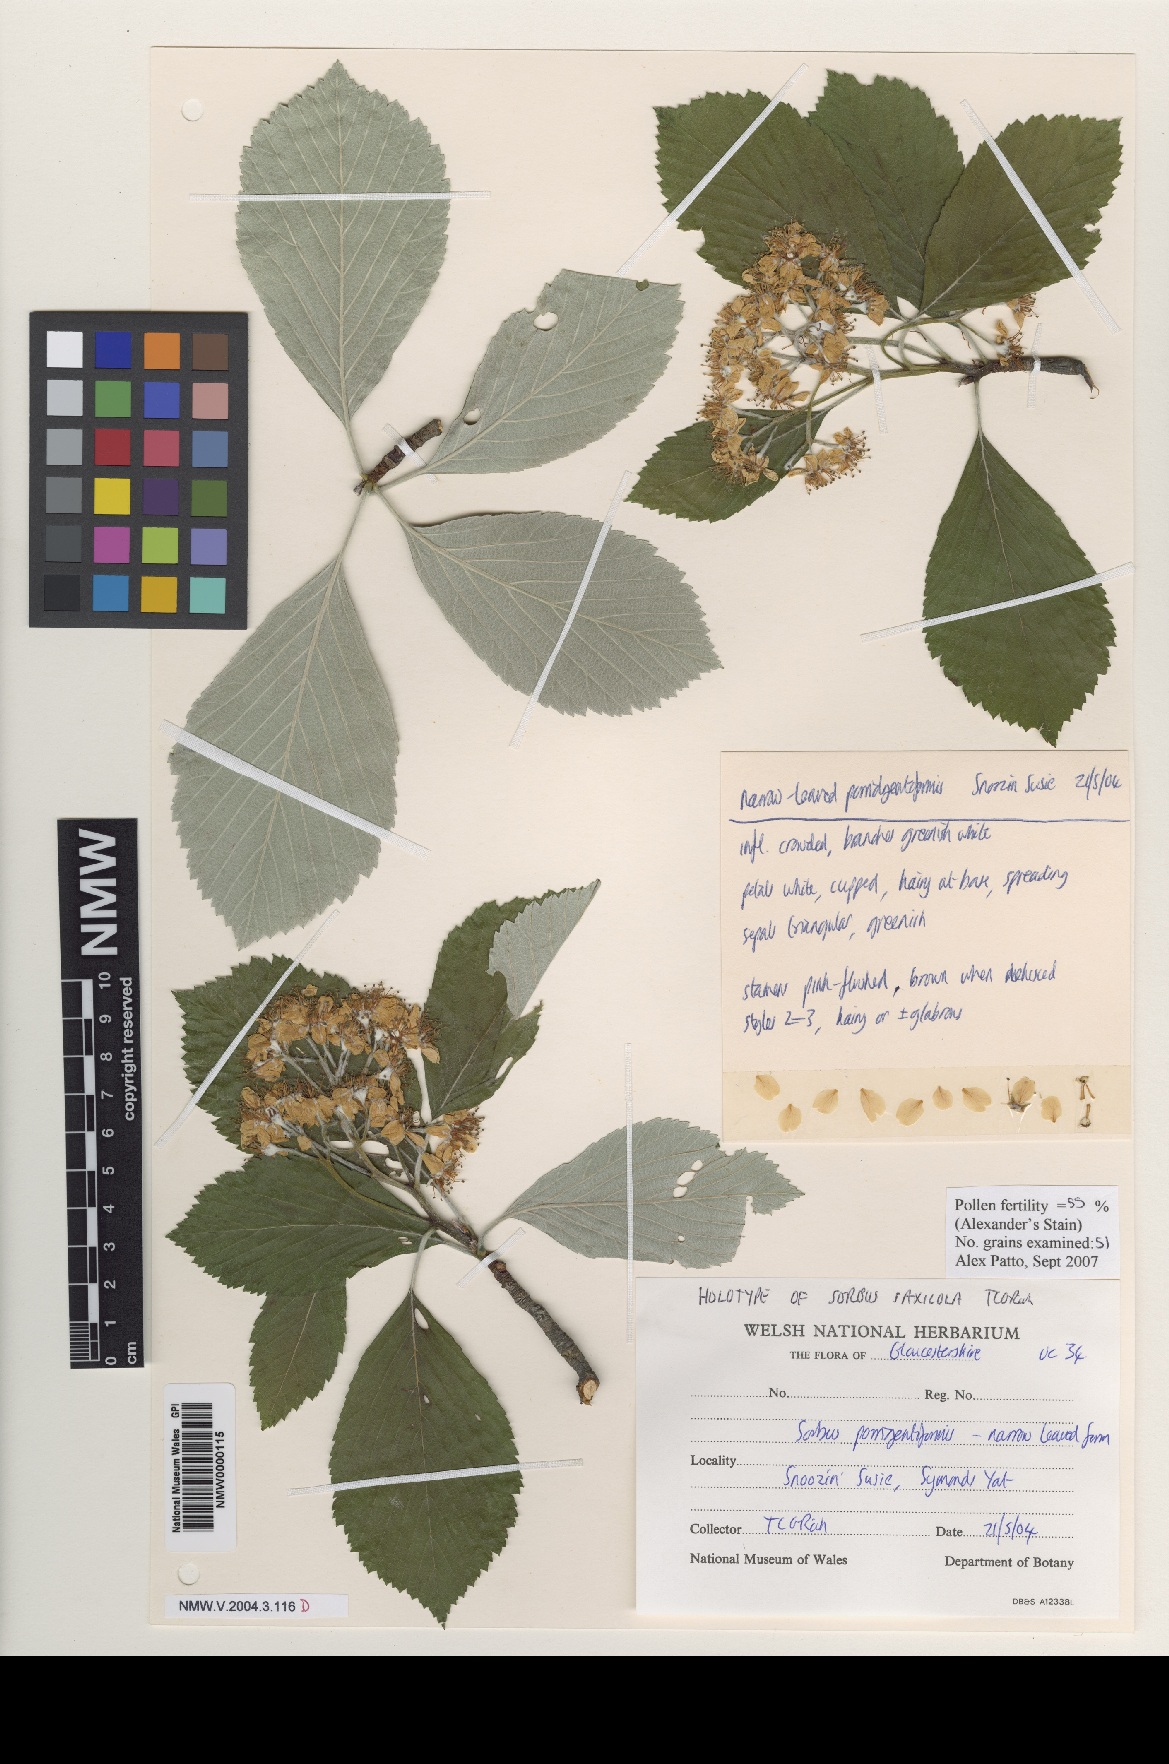 narrow-leaved porrigentiformis Snoozin Susie 21/5/04
infl. crowded, branches greenish white
petals white, cupped, hairy at base, spreading
sepals triangular, greenish
stamens pink-flushed, brown when dehisced
styles 2-3, hairy or ± glabrous
Pollen fertility = 55 %
(Alexander's Stain)
No. grains examined: 51
Alex Patto, Sept 2007
HOLOTYPE OF SORBUS SAXICOLA TCGRich
WELSH NATIONAL HERBARIUM
THE FLORA OF Gloucestershire VC 34
No. Reg. No.
Sorbus porrigentiformis - narrow leaved form
Locality
Snoozin' Susie, Symonds Yat
Collector TCGRich Date 21/5/04
National Museum of Wales Department of Botany
DB&S A12338
NMW
copyright reserved
0 1 2 3 4 5 6 7 8 9 10
cm
National Museum Wales GPI
NMW0000115
NMW.V.2004.3.116 D